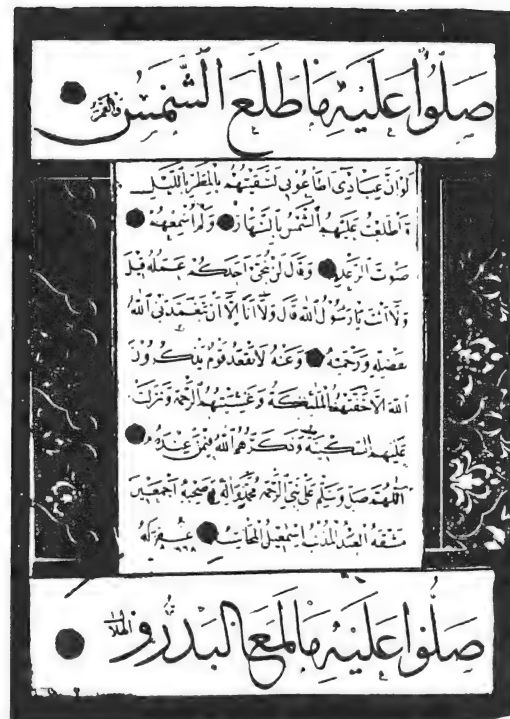 صَلُّوا عَلَيْهِ مَا طَلَعَ الشَّمْسُ وَالْقَمَرُ
لَوْ اَنَّ عِبَادِى اَطَاعُونِى لَسَقَيْتُهُمُ الْمَطَرَ بِاللَّيْلِ
وَاَطْلَعْتُ عَلَيْهِمُ الشَّمْسَ بِالنَّهَارِ وَلَمْ اُسْمِعْهُمْ
صَوْتَ الرَّعْدِ وَقَالَ لَنْ يُنْجِىَ اَحَدَكُمْ عَمَلُهُ قِيلَ
وَلَا اَنْتَ يَا رَسُولَ اللهِ قَالَ وَلَا اَنَا اِلَّا اَنْ يَتَغَمَّدَنِىَ اللهُ
بِفَضْلِهِ وَرَحْمَتِهِ وَعَنْهُ لَا يَقْعُدُ قَوْمٌ يَذْكُرُونَ
اللهَ اِلَّا حَفَّتْهُمُ الْمَلٰئِكَةُ وَغَشِيَتْهُمُ الرَّحْمَةُ وَنَزَلَتْ
عَلَيْهِمُ السَّكِينَةُ وَذَكَرَهُمُ اللهُ فِيمَنْ عِنْدَهُ
اَللّٰهُمَّ صَلِّ وَسَلِّمْ عَلٰى نَبِىِّ الرَّحْمَةِ مُحَمَّدٍ وَاٰلِهِ وَصَحْبِهِ اَجْمَعِينَ
مَشَقَهُ الْعَبْدُ الْمُذْنِبُ اِسْمٰعِيلُ غُفِرَ لَهُ
صَلُّوا عَلَيْهِ مَا لَمَعَ الْبَدْرُ وَ